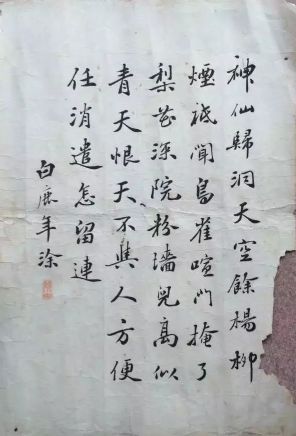 神仙歸洞天空餘楊柳
煙祇聞鳥雀喧門掩了
梨花深院粉墻兒高似
青天恨天不與人方便
任消遣怎留連
白鹿年涂